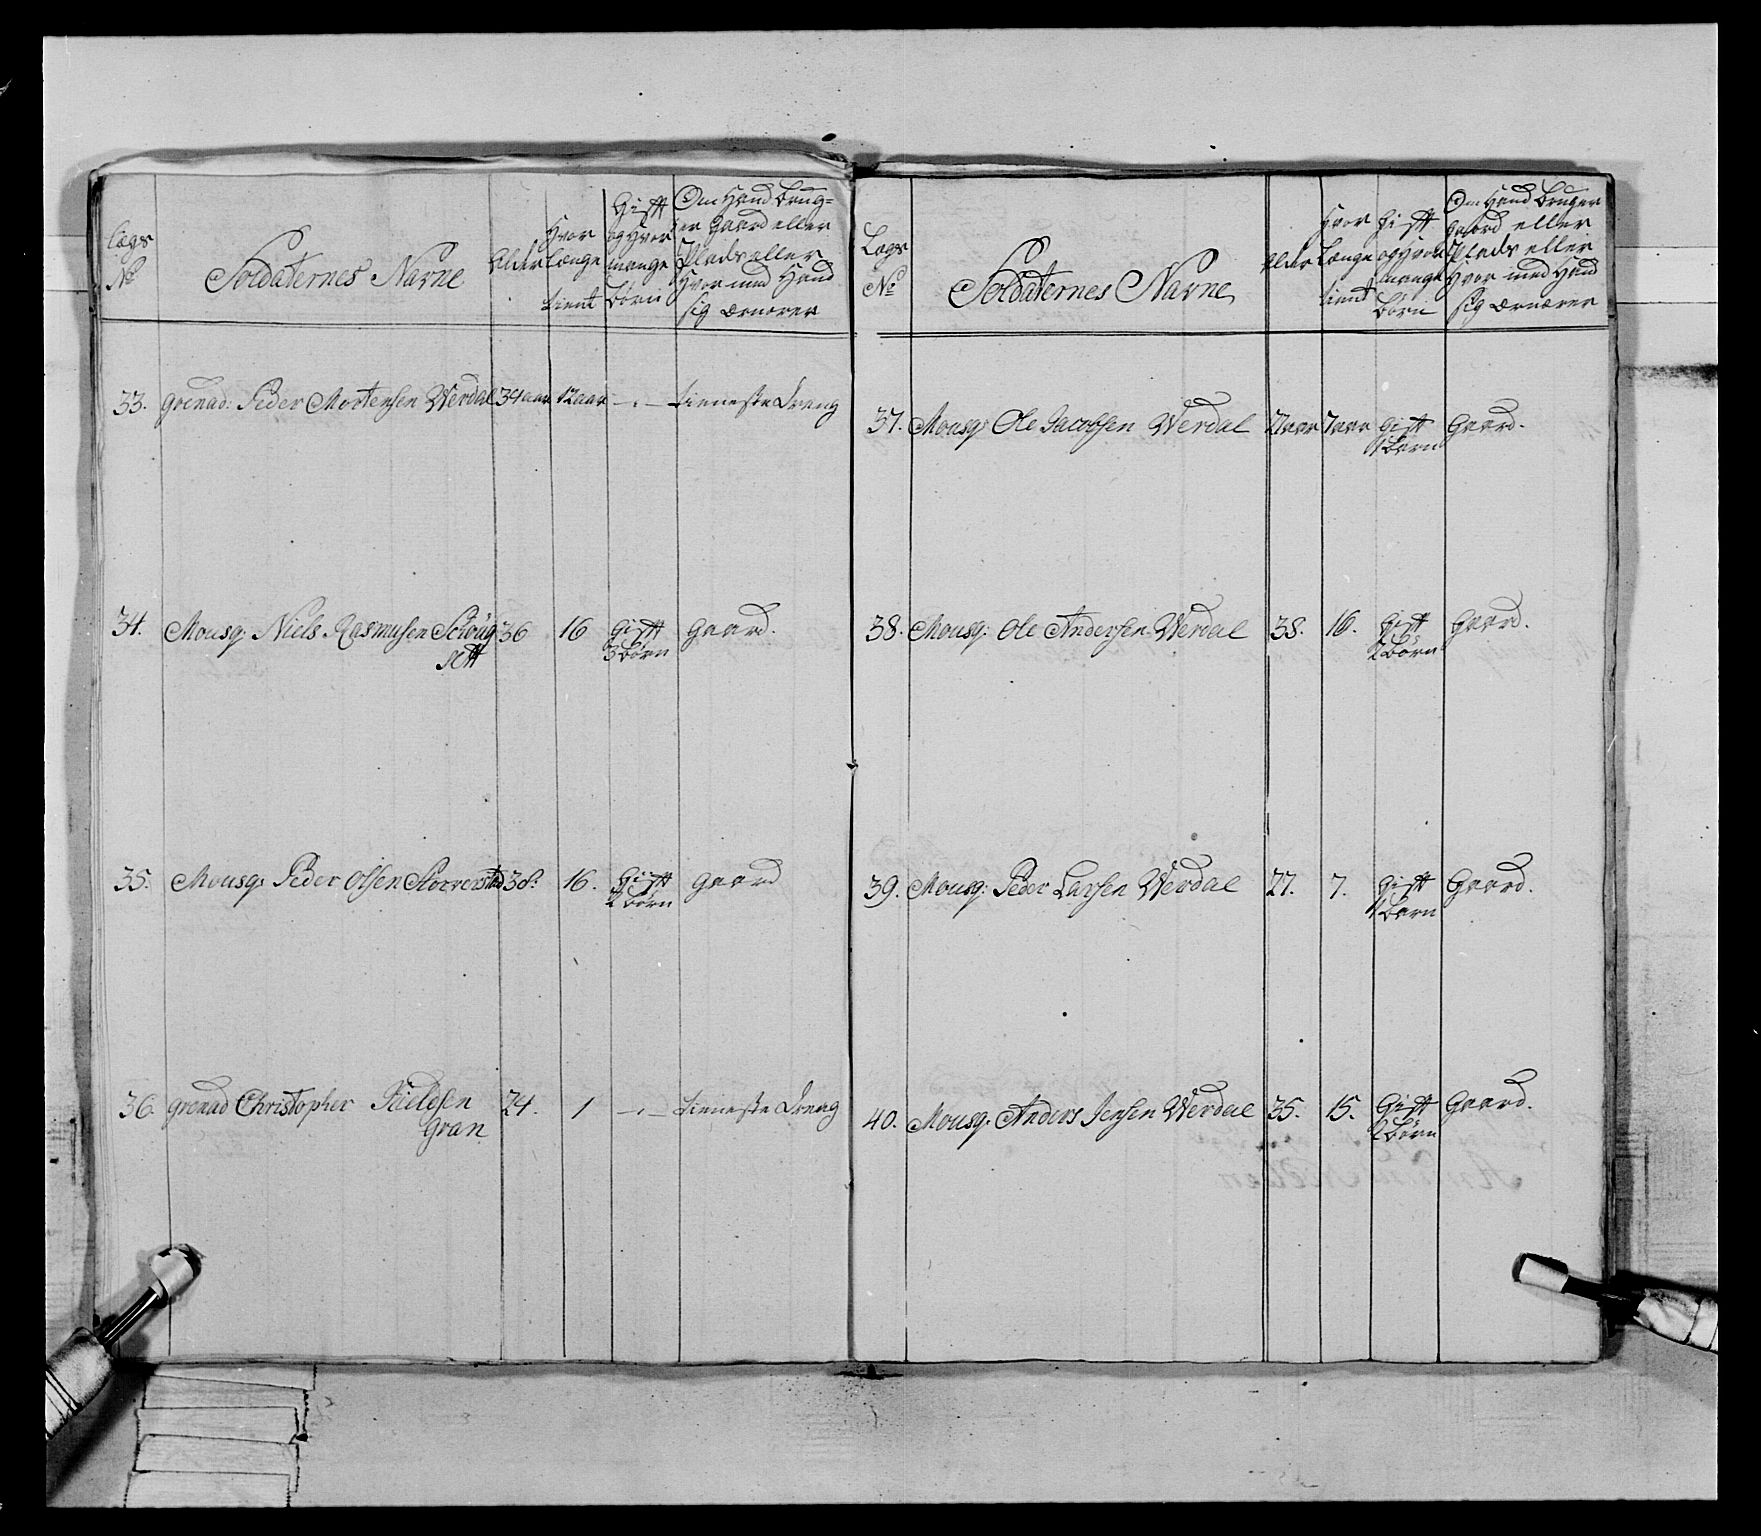 Lægs
No
Soldaternes Navne
Alder
Hvor
længe
tient
Gift
og Hvor
mange
børn
Om Hand brug-
er gaard eller
Plads eller
Hvor med Hand
sig ernærer
33. Grenad: Peder Mortensen Werdal 34 aar 12 aar —.— tieneste Dreng
34. Mousq: Niels Rasmusen 36 16 Gift gaard.
3 børn
35. Mousq: Peder Olsen 38. 16. Gift gaard
2 børn
36. Grenad Christopher 24. 1 —.— tieneste Dreng
Gran
Lægs
No
Soldaternes Navne
Alder
Hvor
Længe
tient
Gift
og Hvor
mange
børn
Om Hand bruger
gaard eller
Plads eller
Hvor med Hand
sig ernærer
37. Mousq: Ole Jacobsen Werdal 27 aar 7 aar Gift Gaard.
1 barn
38. Mousq: Ole Andersen Werdal 38. 16. Gift Gaard.
2 børn
39. Mousq: Peder Larsen Werdal 27. 7. Gift Gaard.
1 barn
40. Mousq: Anders Jensen Werdal 35. 15. Gift Gaard.
2 børn